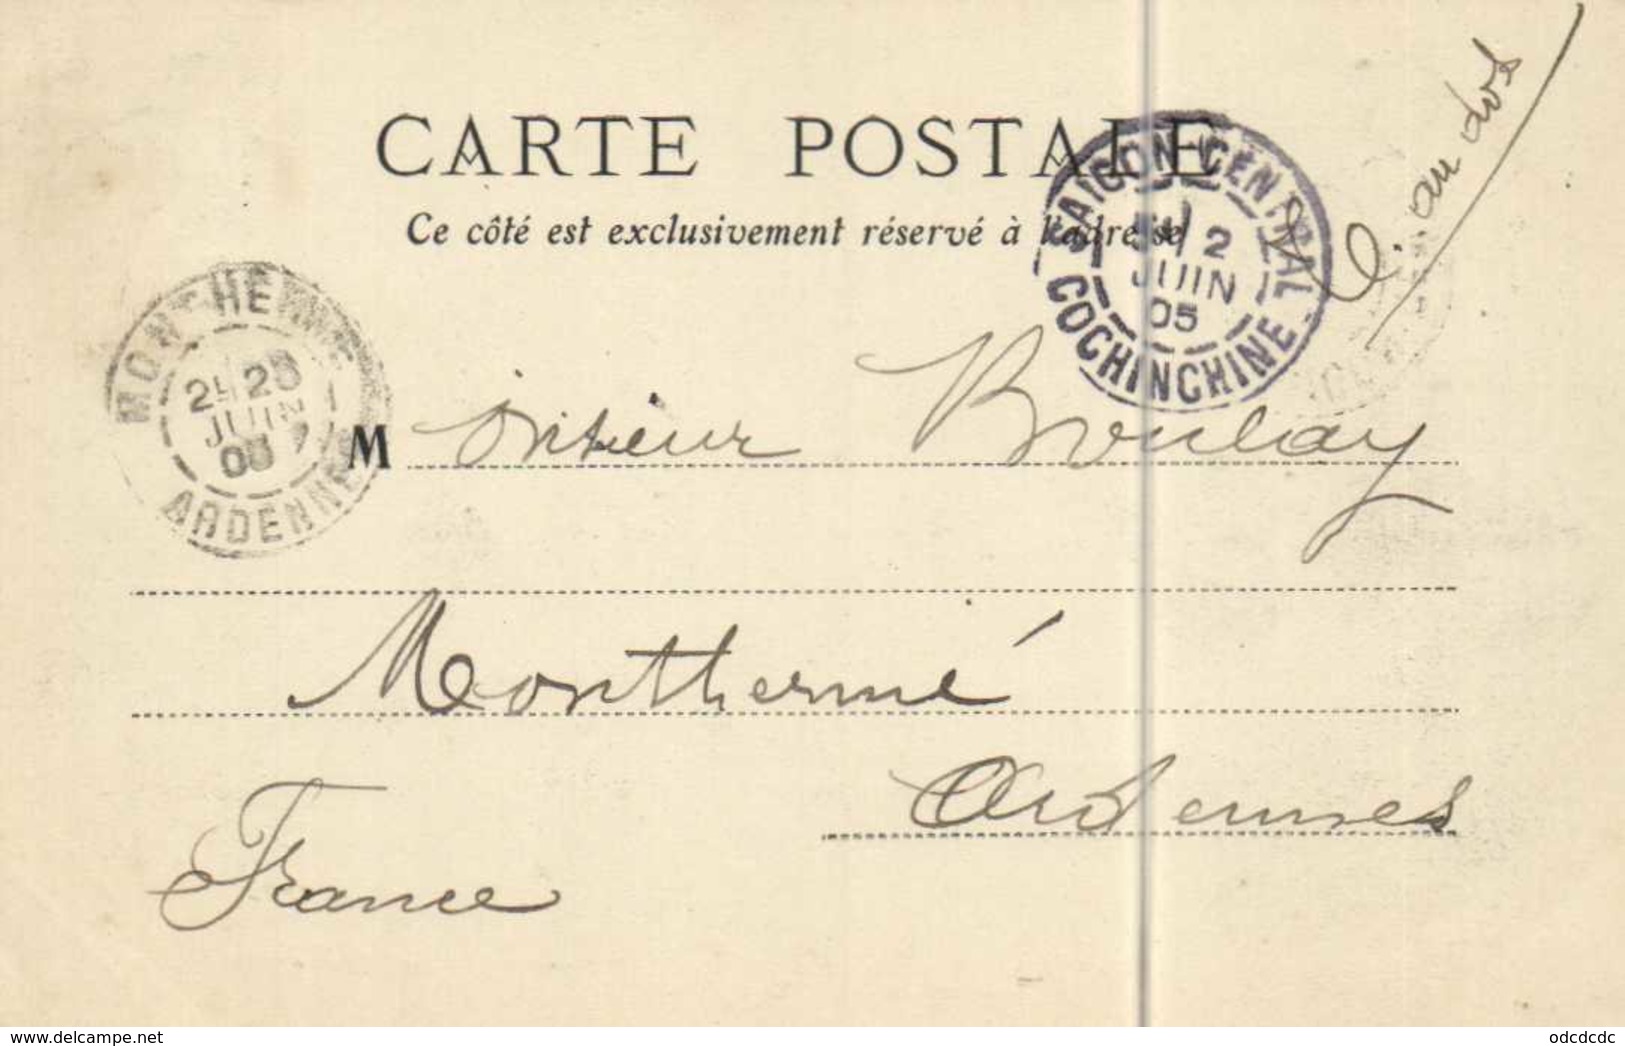 CARTE POSTALE
Ce côté est exclusivement réservé à l'adresse
SAIGON CENTRAL
2
JUIN
05
COCHINCHINE
au dos
MONTHERMÉ
2E 25
JUIN
05
ARDENNES
Monsieur Boulay
Monthermé
Ardennes
France
www.delcampe.net
odcdcdc